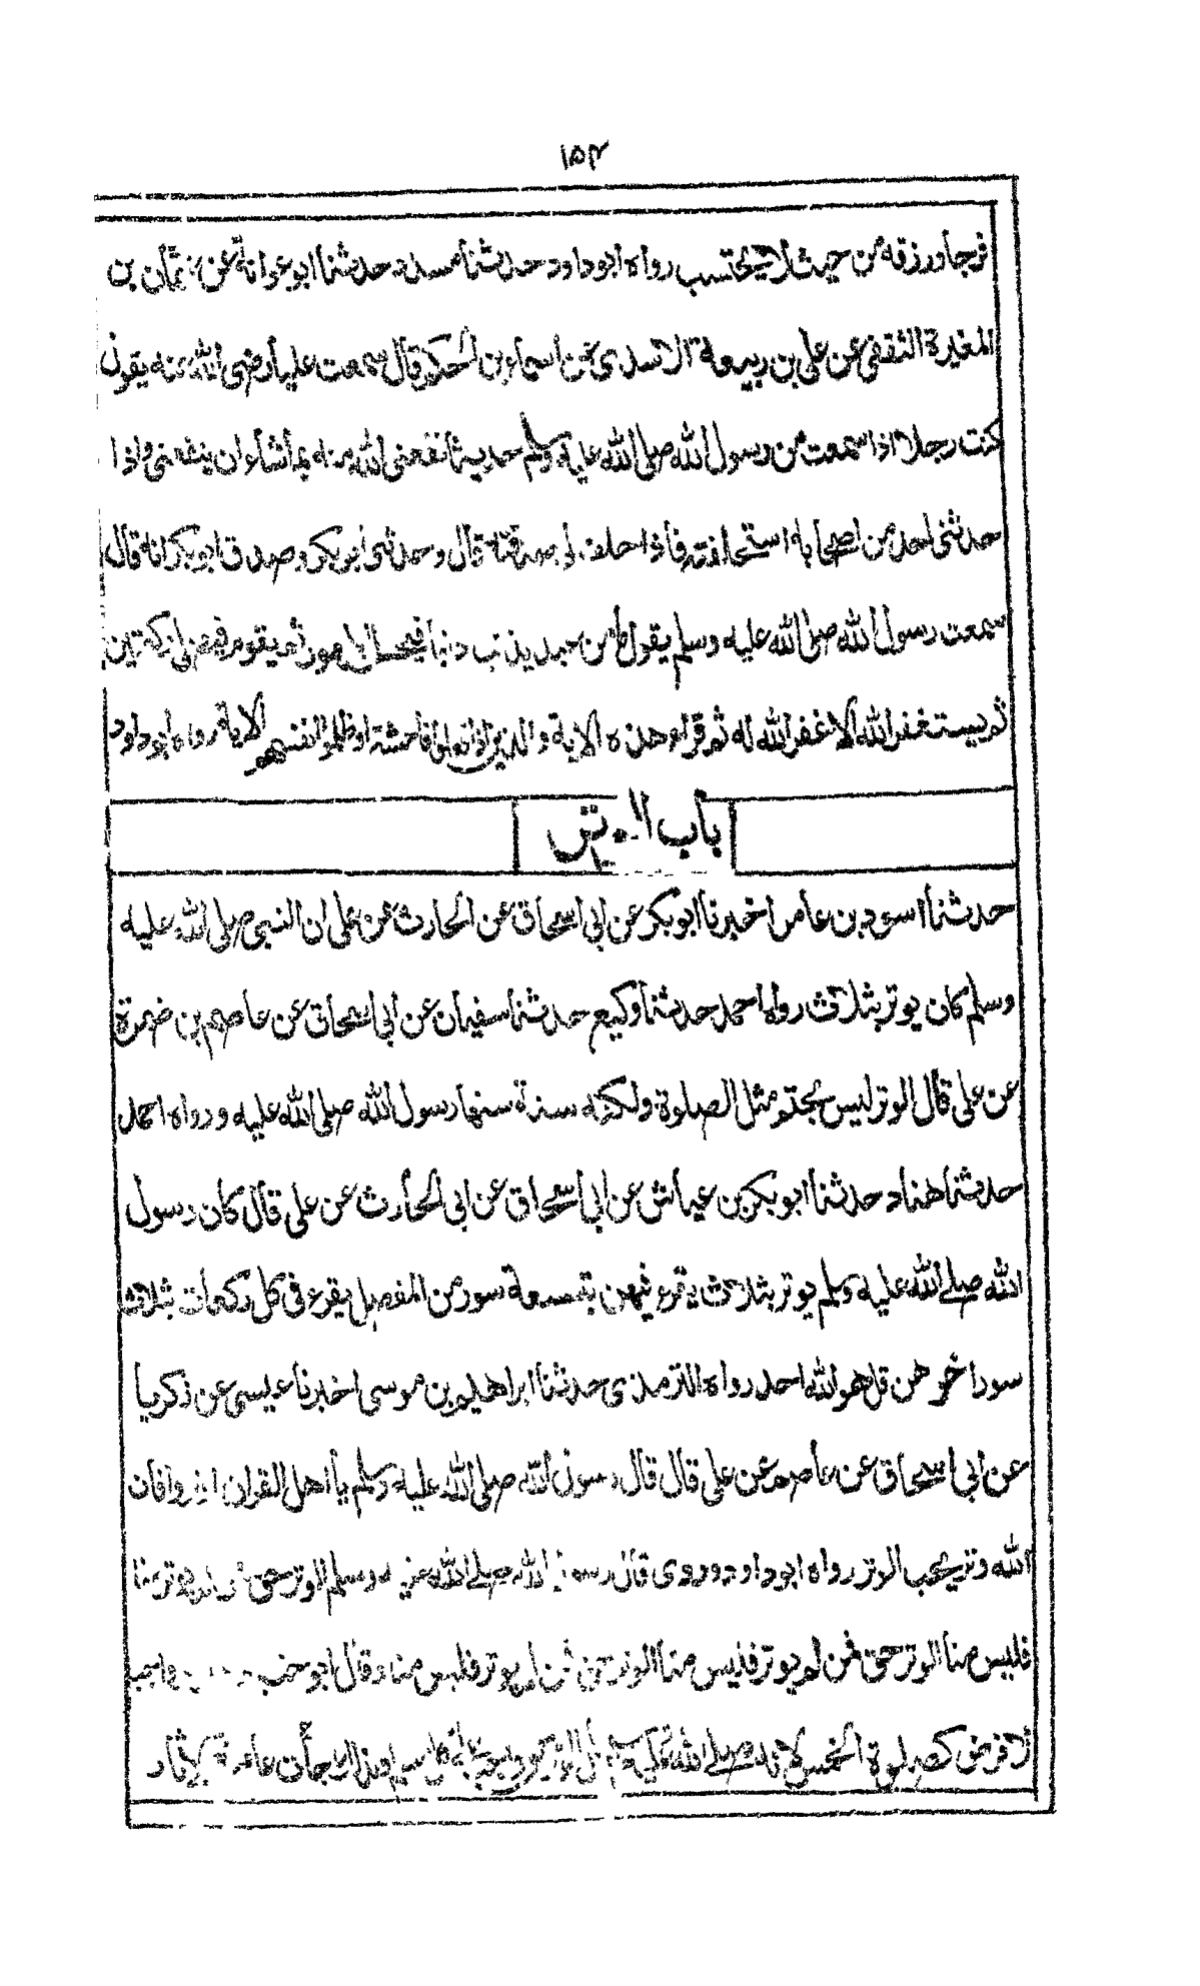 ١٥٢
فرجا ورزقه من حيث لا يحتسب رواه ابوداود حدثنا مسدد حدثنا ابو عوانة عن عثمان بن
المغيرة الثقفي عن علي بن ربيعة الاسدي عن اسماء بن الحكم قال سمعت عليا رضى الله عنه يقول
كنت رجلا اذا سمعت من رسول الله صلى الله عليه وسلم حديثا نفعنى الله منه بما شاء ان ينفعنى واذا
حدثنى احد من اصحابه استحلفته فاذا حلف لى صدقته قال وحدثنى ابوبكر وصدق ابوبكر انه قال
سمعت رسول الله صلى الله عليه وسلم يقول ما من عبد يذنب ذنبا فيحسن الطهور ثم يقوم فيصلى ركعتين
ثم يستغفر الله الا غفر الله له ثم قرا هذه الاية والذين اذا فعلوا فاحشة او ظلموا انفسهم الاية رواه ابوداود
باب الوتر
حدثنا اسود بن عامر اخبرنا ابوبكر عن ابى اسحاق عن الحارث عن على ان النبى صلى الله عليه
وسلم كان يوتر بثلاث رواه احمد حدثنا وكيع حدثنا سفيان عن ابى اسحاق عن عاصم بن ضمرة
عن على قال الوتر ليس بحتم مثل الصلوة ولكنه سنة سنها رسول الله صلى الله عليه و رواه احمد
حدثنا هناد حدثنا ابوبكر بن عياش عن ابى اسحاق عن ابى الحارث عن على قال كان رسول
الله صلى الله عليه وسلم يوتر بثلاث يقرء فيهن بتسعة سور من المفصل يقرء فى كل ركعات بثلاث
سور اخرهن قل هو الله احد رواه الترمذى حدثنا ابراهيم بن موسى اخبرنا عيسى عن زكريا
عن ابى اسحاق عن عاصم عن على قال قال رسول الله صلى الله عليه وسلم يا اهل القران اوتروا فان
الله وتر يحب الوتر رواه ابوداود وروى قال رسول الله صلى الله عليه وسلم الوتر حق فمن لم يوتر منا
فليس منا الوتر حق فمن لم يوتر فليس منا الوتر حق فمن لم يوتر فليس منا وقال ابو حنيفة واجب
لا فرض كصلوة الخمس لانه صلى الله عليه عامة الاثار